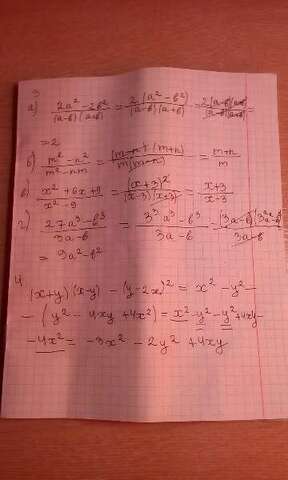 3
а) 2a² - 2b² / (a-b)(a+b) = 2(a² - b²) / (a-b)(a+b) = 2(a-b)(a+b) / (a-b)(a+b) =
= 2
б) m² - n² / m² - nm = (m-n)(m+n) / m(m-n) = m+n / m
в) x² + 6x + 9 / x² - 9 = (x+3)² / (x-3)(x+3) = x+3 / x-3
г) 27a³ - b³ / 3a - b = 3³a³ - b³ / 3a - b = (3a-b) / 3a-b
= 9a² - b²
4
(x+y)(x-y) - (y-2x)² = x² - y² -
- (y² - 4xy + 4x²) = x² - y² - y² + 4xy -
- 4x² = -3x² - 2y² + 4xy